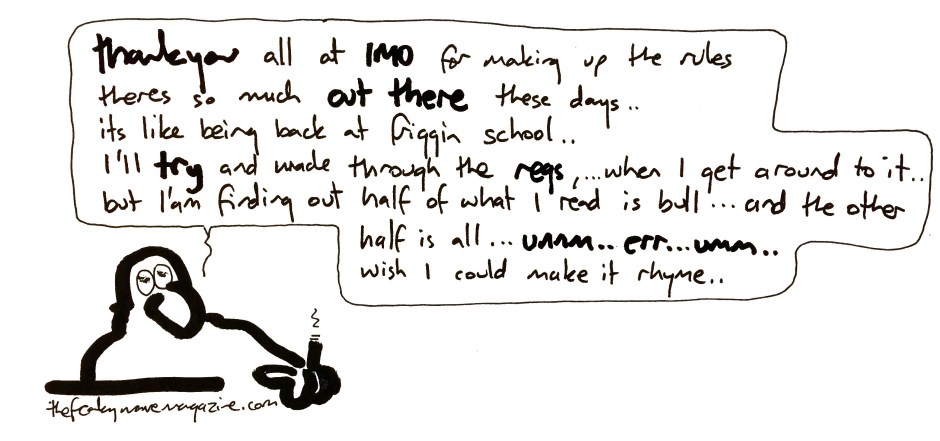 thankyou all at IMO for making up the rules
theres so much out there these days..
its like being back at friggin school..
I'll try and wade through the regs,...when I get around to it..
but I'am finding out half of what I read is bull...and the other
half is all... ummm.. err...umm..
wish I could make it rhyme..